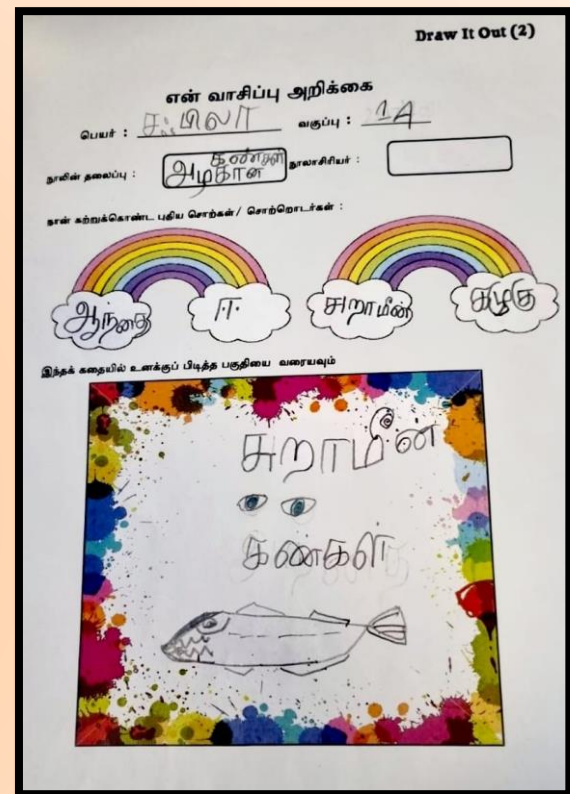 Draw It Out (2)
என் வாசிப்பு அறிக்கை
பெயர் : சுபிலா வகுப்பு : 1A
நூலின் தலைப்பு : அழகான கண்கள் நூலாசிரியர் :
நான் கற்றுக்கொண்ட புதிய சொற்கள்/ சொற்றொடர்கள் :
ஆந்தை ஈ சுறாமீன் கழுகு
இந்தக் கதையில் உனக்குப் பிடித்த பகுதியை வரையவும்
சுறாமீன்
கண்கள்